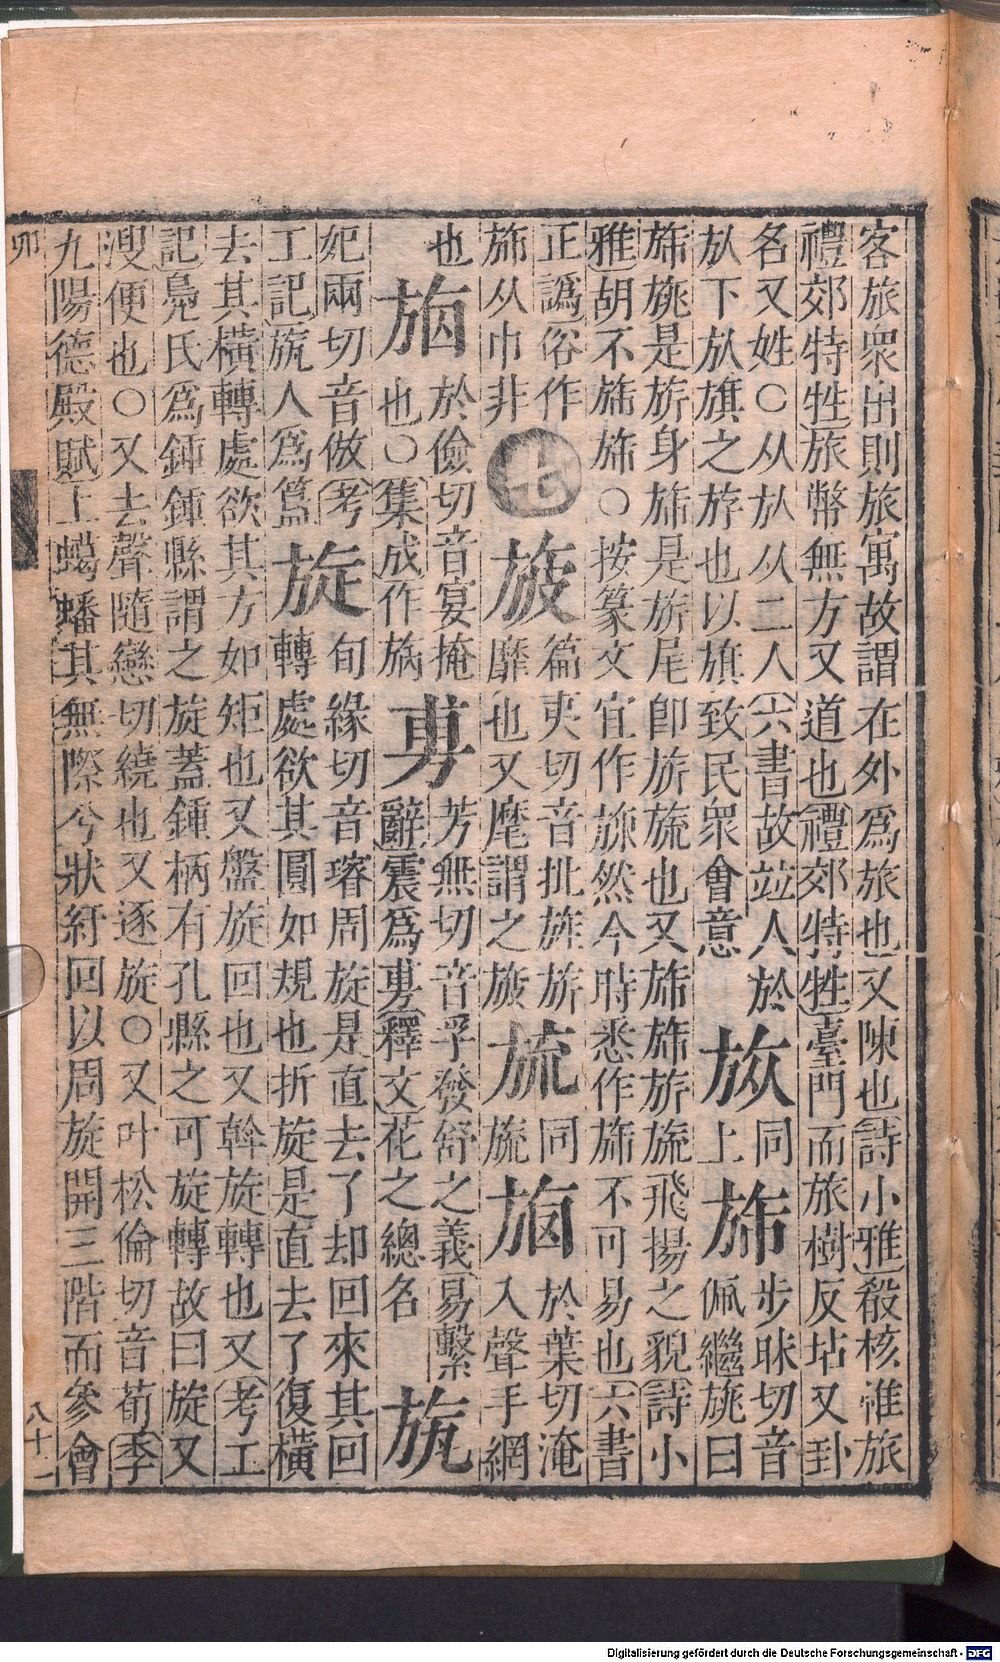 客旅衆出則旅寓故謂在外爲旅也又陳也詩小雅殽核惟旅
禮郊特牲旅幣無方又道也禮郊特牲臺門而旅樹反坫又卦
名又姓○从㫃从二人六書故竝人於
㫃下㫃旗之斿也以旗致民眾會意
㫋
同
上
斾
步昧切音
佩繼旐曰
斾旐是旂身斾是旂尾卽旂旒也又斾斾旂旒飛揚之貌詩小
雅胡不旆斾○按篆文宜作旆然今時悉作斾不可易也六書
正譌俗作
斾从巾非
七
旇
篇夷切音批旌旂
靡也又麾謂之旇
㫍
同
旒
㫈
於葉切淹
入聲手網
也
於儉切音宴掩
也○集成作㫈
旉
芳無切音孚發舒之義易繫
辭震爲旉釋文花之總名
㫊
妃兩切音倣考
工記㫊人爲簋
旋
旬緣切音璿周旋是直去了却回來其回
轉處欲其圓如規也折旋是直去了復橫
去其橫轉處欲其方如矩也又盤旋回也又斡旋轉也又考工
記鳧氏爲鍾鍾縣謂之旋蓋鍾柄有孔縣之可旋轉故曰旋又
溲便也○又去聲隨戀切繞也又逐旋○又叶松倫切音荀李
九陽德殿賦上蟃蟠其無際兮狀紆回以周旋開三階而參會
卯
八十一
Digitalisierung gefördert durch die Deutsche Forschungsgemeinschaft - DFG